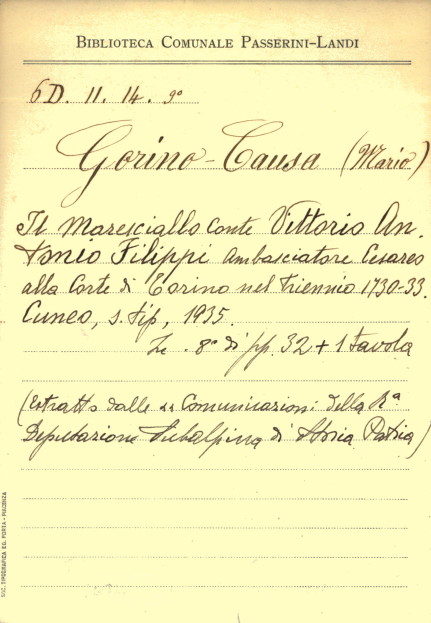 BIBLIOTECA COMUNALE PASSERINI-LANDI
6D. 11. 14. 9º
Gorino-Causa (Mario)
Il Maresciallo Conte Vittorio An-
tonio Filippi Ambasciatore Cesareo
alla Corte di Torino nel triennio 1730-33.
Cuneo, s. tip, 1935.
8º di pp. 32 + 1 tavola
(Estratto dalle "Comunicazioni della Rª
Deputazione Subalpina di Storia Patria)
SOC. TIPOGRAFICA ED. PORTA - PIACENZA